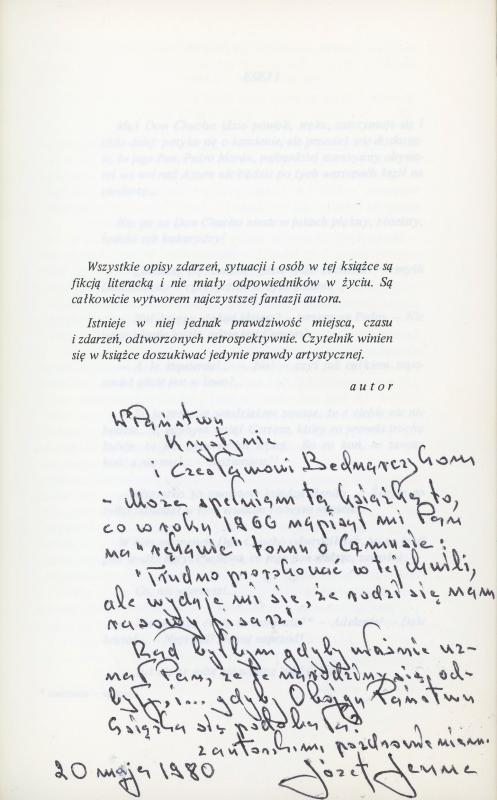 Wszystkie opisy zdarzeń, sytuacji i osób w tej książce są
fikcją literacką i nie miały odpowiedników w życiu. Są
całkowicie wytworem najczystszej fantazji autora.
Istnieje w niej jednak prawdziwość miejsca, czasu
i zdarzeń, odtworzonych retrospektywnie. Czytelnik winien
się w książce doszukiwać jedynie prawdy artystycznej.
autor
W Państwu
Krystynie
i Czesławowi Bednarczykom
- Może spełniam tą książką to,
co w roku 1966 napisał mi Pan
na "rękawie" tomu o Camusie:
"Trudno prorokować w tej chwili,
ale wydaje mi się, że rodzi się nam
rasowy pisarz".
Rad byłbym gdyby właśnie uz-
nał Pan, że te narodziny się od-
były, i... gdyby Obojgu Państwu
książka się podobała.
z autorskimi pozdrowieniami.
20 maja 1980 Józef Jenne